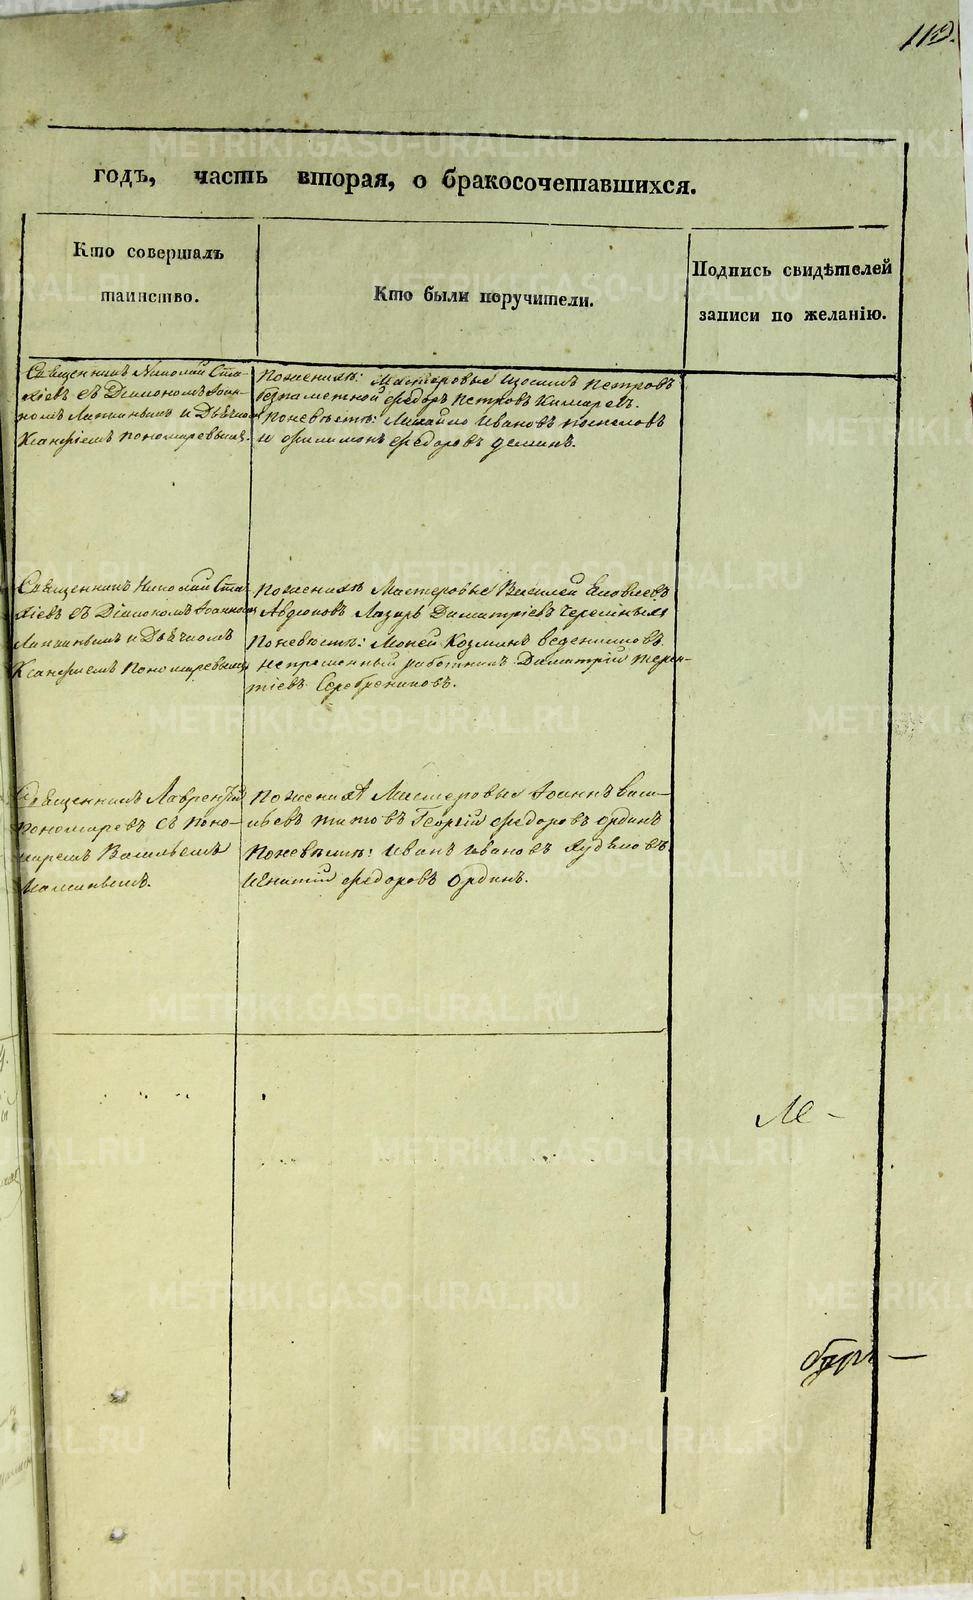 113.
годъ, часть вторая, о бракосочетавшихся.
Кто совершалъ
таинство.
Кто были поручители.
Подпись свидѣтелей
записи по желанію.
Священникъ Николай Ста-
хіевъ съ Діакономъ Іоан-
номъ и Дьячкомъ
Ксанфіемъ Пономаревымъ.
По женихѣ: Мастеровые Зосимъ Петровъ
Федоръ Петровъ
По невѣстѣ: Михайло Ивановъ Поспеловъ
и Филимонъ Федоровъ Деминъ.
Священникъ Николай Ста-
хіевъ съ Діакономъ Іоанномъ
и Дьячкомъ
Ксанфіемъ Пономаревымъ
По женихѣ Мастеровые Василей Яковлевъ
Лазарь Димитріевъ
По невѣстѣ: Мокей Козминъ Веденниковъ
непременный работникъ Димитрій Терен-
тіевъ Серебрениковъ.
Священникъ Лаврентій
Пономаревъ съ Поно-
маремъ Васильемъ
По женихѣ Мастеровые Іоаннъ Васи-
льевъ Титовъ Георгій Федоровъ Ординъ
По невѣстѣ: Иванъ Ивановъ Худяковъ
Игнатій Федоровъ Ординъ.
METRIKI.GASO-URAL.RU